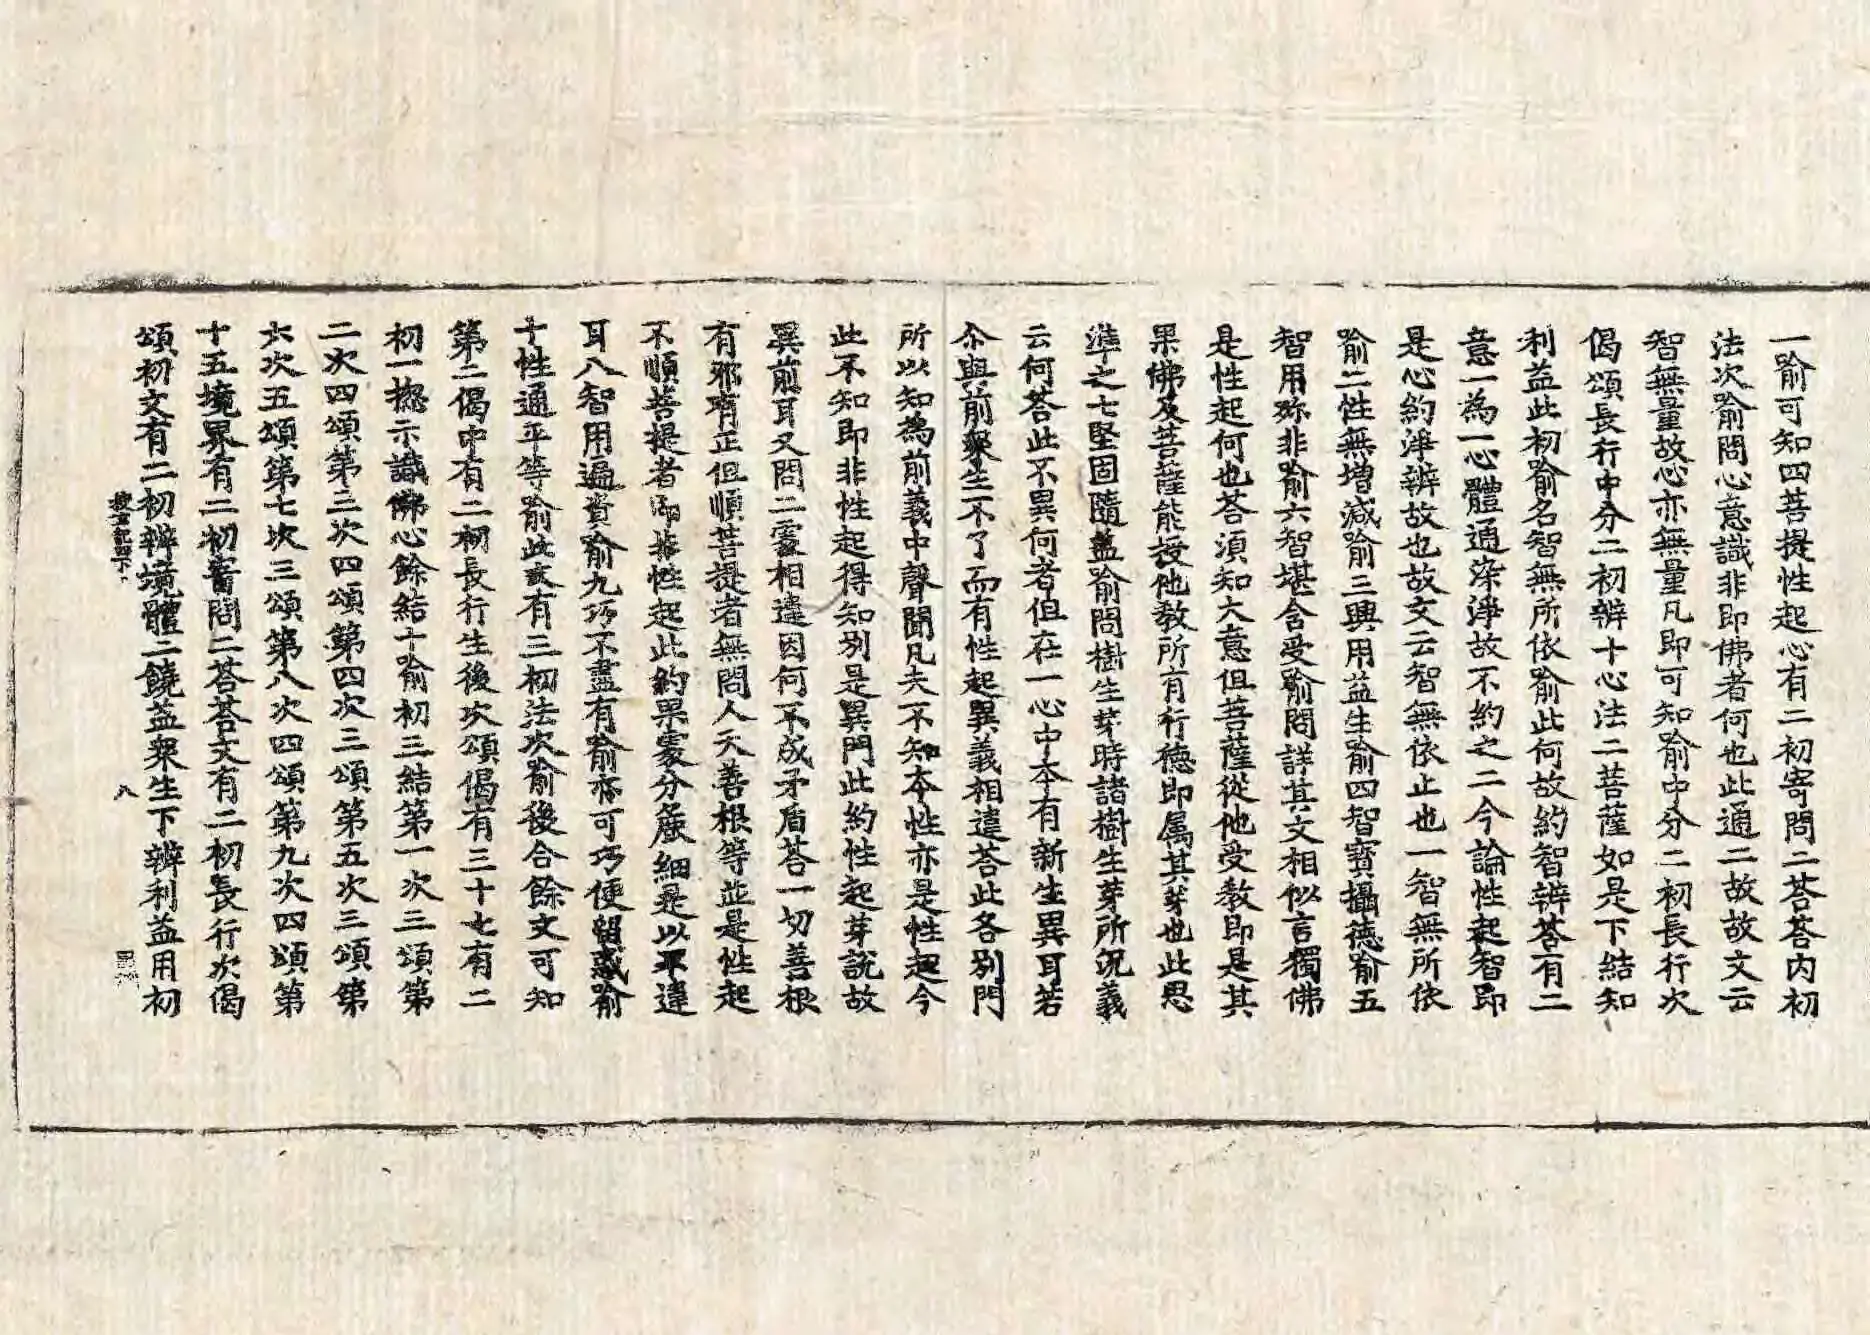 一喻可知四菩提性起心有二初寄問二荅荅内初
法次喻問心意識非即佛者何也此通二故故文云
智無量故心亦無量凡即可知喻中分二初長行次
偈頌長行中分二初辨十心法二菩薩如是下結知
利益此初喻名智無所依喻此何故約智辨荅有二
意一為一心體通染淨故不約之二今論性起智即
是心約淨辨故也故文云智無依止也一智無所依
喻二性無增減喻三與用益生喻四智寶攝德喻五
智用殊非喻六智堪含受喻問詳其文相似言獨佛
是性起何也荅須知大意但菩薩從他受教即是其
果佛及菩薩能授他教所有行德即属其芽也此思
準之七堅固隨益喻問樹生芽時諸樹生芽所況義
云何荅此不異何者但在一心中本有新生異耳若
尒與前衆生不了而有性起異義相違荅此各別門
所以知為前義中聲聞凡夫不知本性亦是性起今
此不知即非性起得知別是異門此約性起芽說故
異前耳又問二處相違因何不成矛盾荅一切善根
有邪有正但順菩提者無問人天善根等並是性起
不順菩提者即非性起此約果處分麁細是以不違
耳八智用遍資喻九巧不盡有喻亦可巧便留惑喻
十性通平等喻此文有三初法次喻後合餘文可知
第二偈中有二初長行生後次頌偈有三十七有二
初一揔示識佛心餘結十喻初三結第一次三頌第
二次四頌第三次四頌第四次三頌第五次三頌第
六次五頌第七次三頌第八次四頌第九次四頌第
十五境界有二初舊問二荅荅文有二初長行次偈
頌初文有二初辨境體二饒益衆生下辨利益用初
搜玄記四下 八